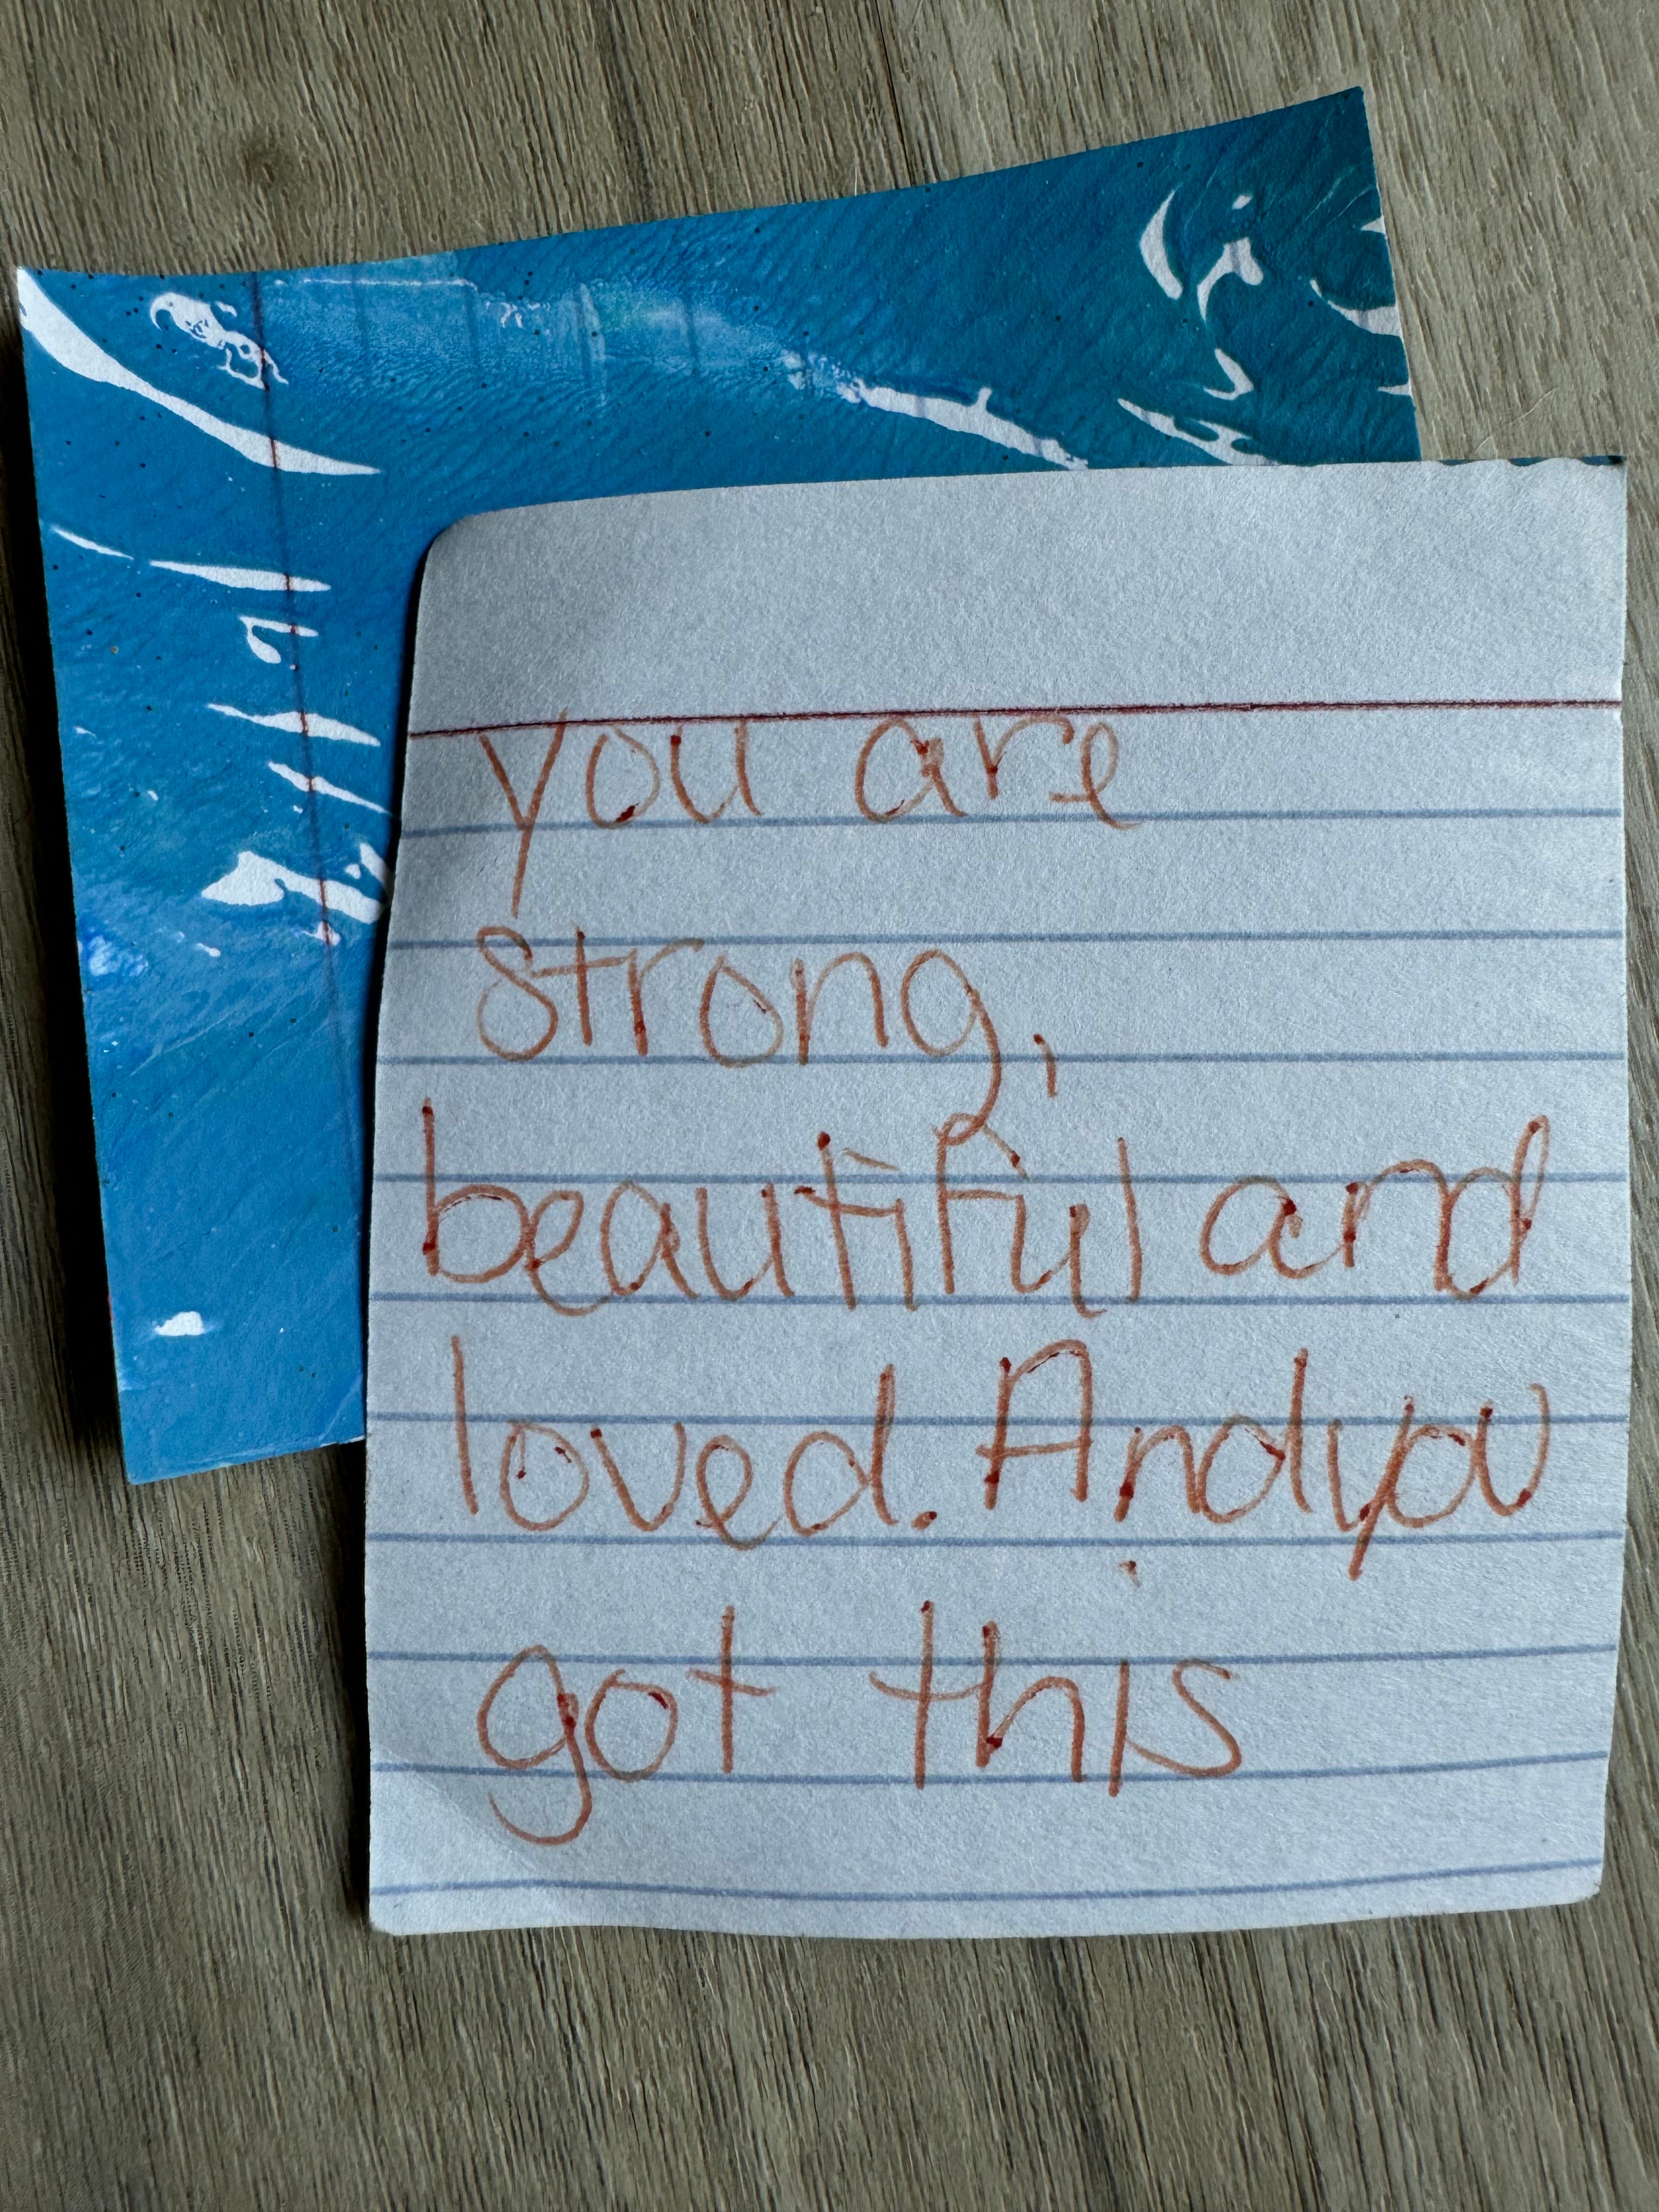 you are
strong,
beautiful and
loved. And you
got this